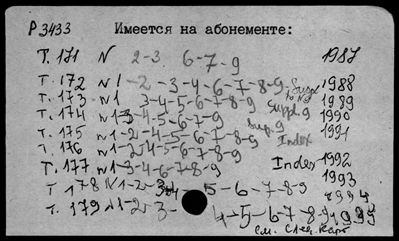 Р 3433 Имеется на абонементе:
Т. 171 N 2-3 6-7-9 1987
Т. 172 N1-2-3-4-6-7-8-9 Suppl 1988
Т. 173 N1 3-4-5-6-7-8-9 1989
Т. 174 N1-3-4-5-6-7-9 Suppl. 9 1990
Т. 175 N1-2-4-5-6-7-8-9 Sup. 9 1991
Т. 176 N1-2-4-5-6-7-8-9 Index
Т. 177 N1-3-4-6-7-8-9 Index 1992
1993
Т 178 N1-2-3-4-5-6-7-8-9 1994
Т. 179 N1-2-3-4-5-6-7-8-9 1995
См. След. Карт